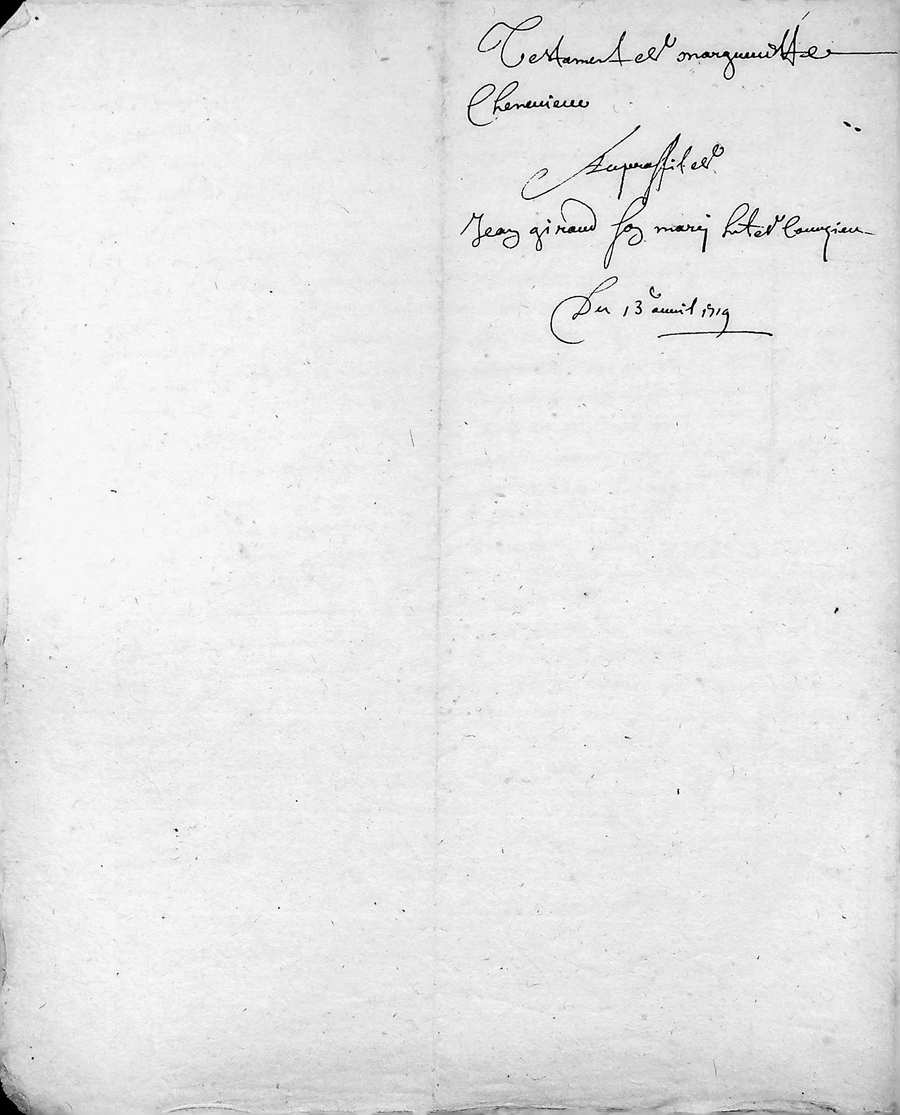 Testament de margueritte
Cheneviere
Au proffit de
Jean giraud son mary hoste
Du 13e avvril 1719